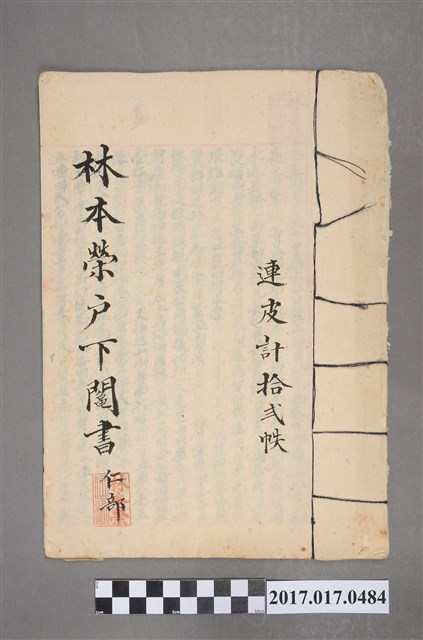 連皮計拾弍帙
林本榮户下鬮書
仁部
2017.017.0484